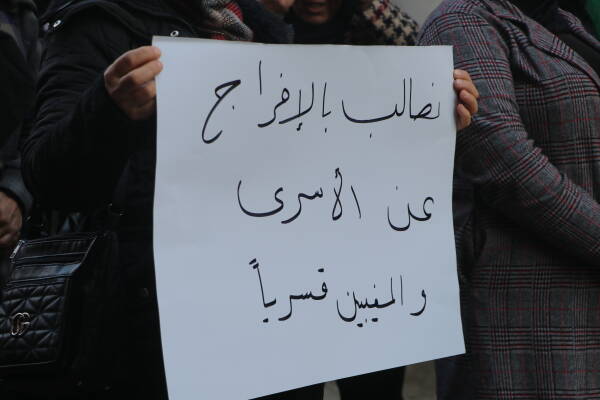 نطالب بالإفراج
عن الأسرى
والمغيبين قسرياً